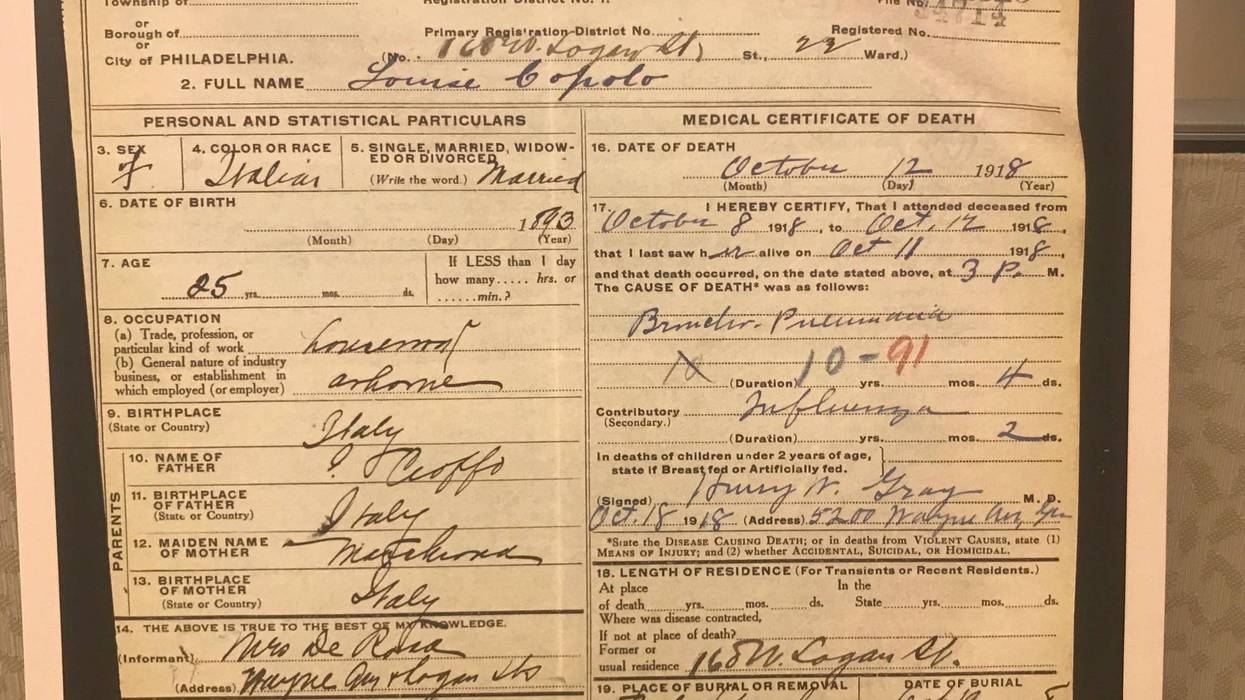 Township of
Registration District No. 1.
File No.
Borough of
Primary Registration District No.
Registered No.
or
or
City of PHILADELPHIA.
(No. W. Logan St, St., 22 Ward.)
2. FULL NAME Louise Copolo
PERSONAL AND STATISTICAL PARTICULARS
3. SEX
f
4. COLOR OR RACE
Italian
5. SINGLE, MARRIED, WIDOW-
ED OR DIVORCED
(Write the word.) Married
6. DATE OF BIRTH
1893
(Month) (Day) (Year)
7. AGE
25 yrs. mos. ds.
If LESS than 1 day
how many..... hrs. or
......min.?
8. OCCUPATION
(a) Trade, profession, or
particular kind of work
(b) General nature of industry
business, or establishment in
which employed (or employer)
9. BIRTHPLACE
(State or Country)
Italy
PARENTS
10. NAME OF
FATHER
? Cioffo
11. BIRTHPLACE
OF FATHER
(State or Country)
Italy
12. MAIDEN NAME
OF MOTHER
13. BIRTHPLACE
OF MOTHER
(State or Country)
Italy
14. THE ABOVE IS TRUE TO THE BEST OF MY KNOWLEDGE.
(Informant) Mrs De Rosa
(Address) Wayne Ave & Logan Sts
MEDICAL CERTIFICATE OF DEATH
16. DATE OF DEATH
October 12 1918
(Month) (Day) (Year)
17. I HEREBY CERTIFY, That I attended deceased from
October 8 1918, to Oct. 12 1918,
that I last saw her alive on Oct 11 1918,
and that death occurred, on the date stated above, at 3 P. M.
The CAUSE OF DEATH* was as follows:
Broncho-Pneumonia
10 10-91
(Duration) yrs. mos. 4 ds.
Contributory Influenza
(Secondary.)
(Duration) yrs. mos. 2 ds.
In deaths of children under 2 years of age,
state if Breast fed or Artificially fed.
(Signed) Henry W. Gray M. D.
Oct. 18 1918 (Address) 5200 Wayne Av,
*State the DISEASE CAUSING DEATH; or in deaths from VIOLENT CAUSES, state (1)
MEANS OF INJURY; and (2) whether ACCIDENTAL, SUICIDAL, OR HOMICIDAL.
18. LENGTH OF RESIDENCE (For Transients or Recent Residents.)
At place In the
of death yrs. mos. ds. State yrs. mos. ds.
Where was disease contracted,
If not at place of death?
Former or
usual residence 160 W. Logan St.
19. PLACE OF BURIAL OR REMOVAL
DATE OF BURIAL